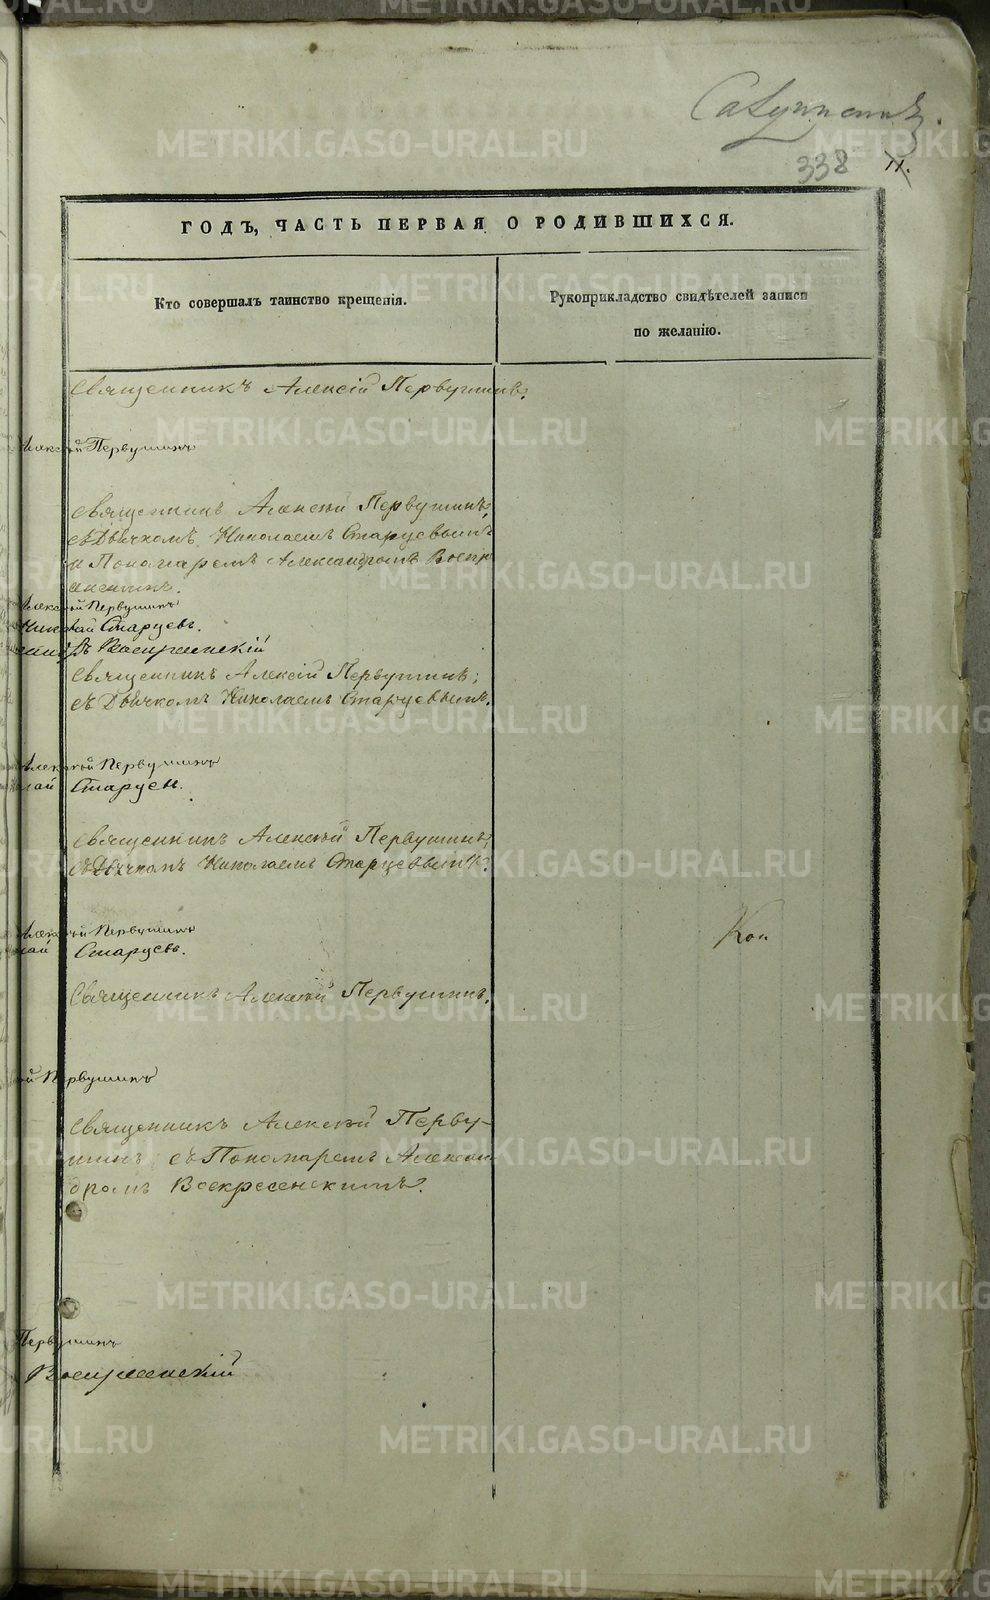 338 11.
ГОДЪ, ЧАСТЬ ПЕРВАЯ О РОДИВШИХСЯ.
Кто совершалъ таинство крещенія.
Рукоприкладство свидѣтелей записи
по желанію.
Священникъ Алексій Первушинъ.
Алексѣй Первушинъ
Священникъ Алексій Первушинъ,
съ Дьячкомъ Николаемъ Старцевымъ
и Пономаремъ Александромъ Воскре
сенскимъ.
Алексѣй Первушинъ
Николай Старцевъ.
Воскресенскій
Священникъ Алексій Первушинъ;
съ Дьячкомъ Николаемъ Старцевымъ.
Алексѣй Первушинъ
лай Старцевъ.
Священникъ Алексій Первушинъ,
съ Дьячкомъ Николаемъ Старцевымъ.
Алексѣй Первушинъ
лай Старцевъ.
Коп
Священникъ Алексій Первушинъ.
ѣй Первушинъ
Священникъ Алексій Перву-
шинъ; съ Пономаремъ Алексан
дромъ Воскресенскимъ.
Первушинъ
Воскресенскій
METRIKI.GASO-URAL.RU